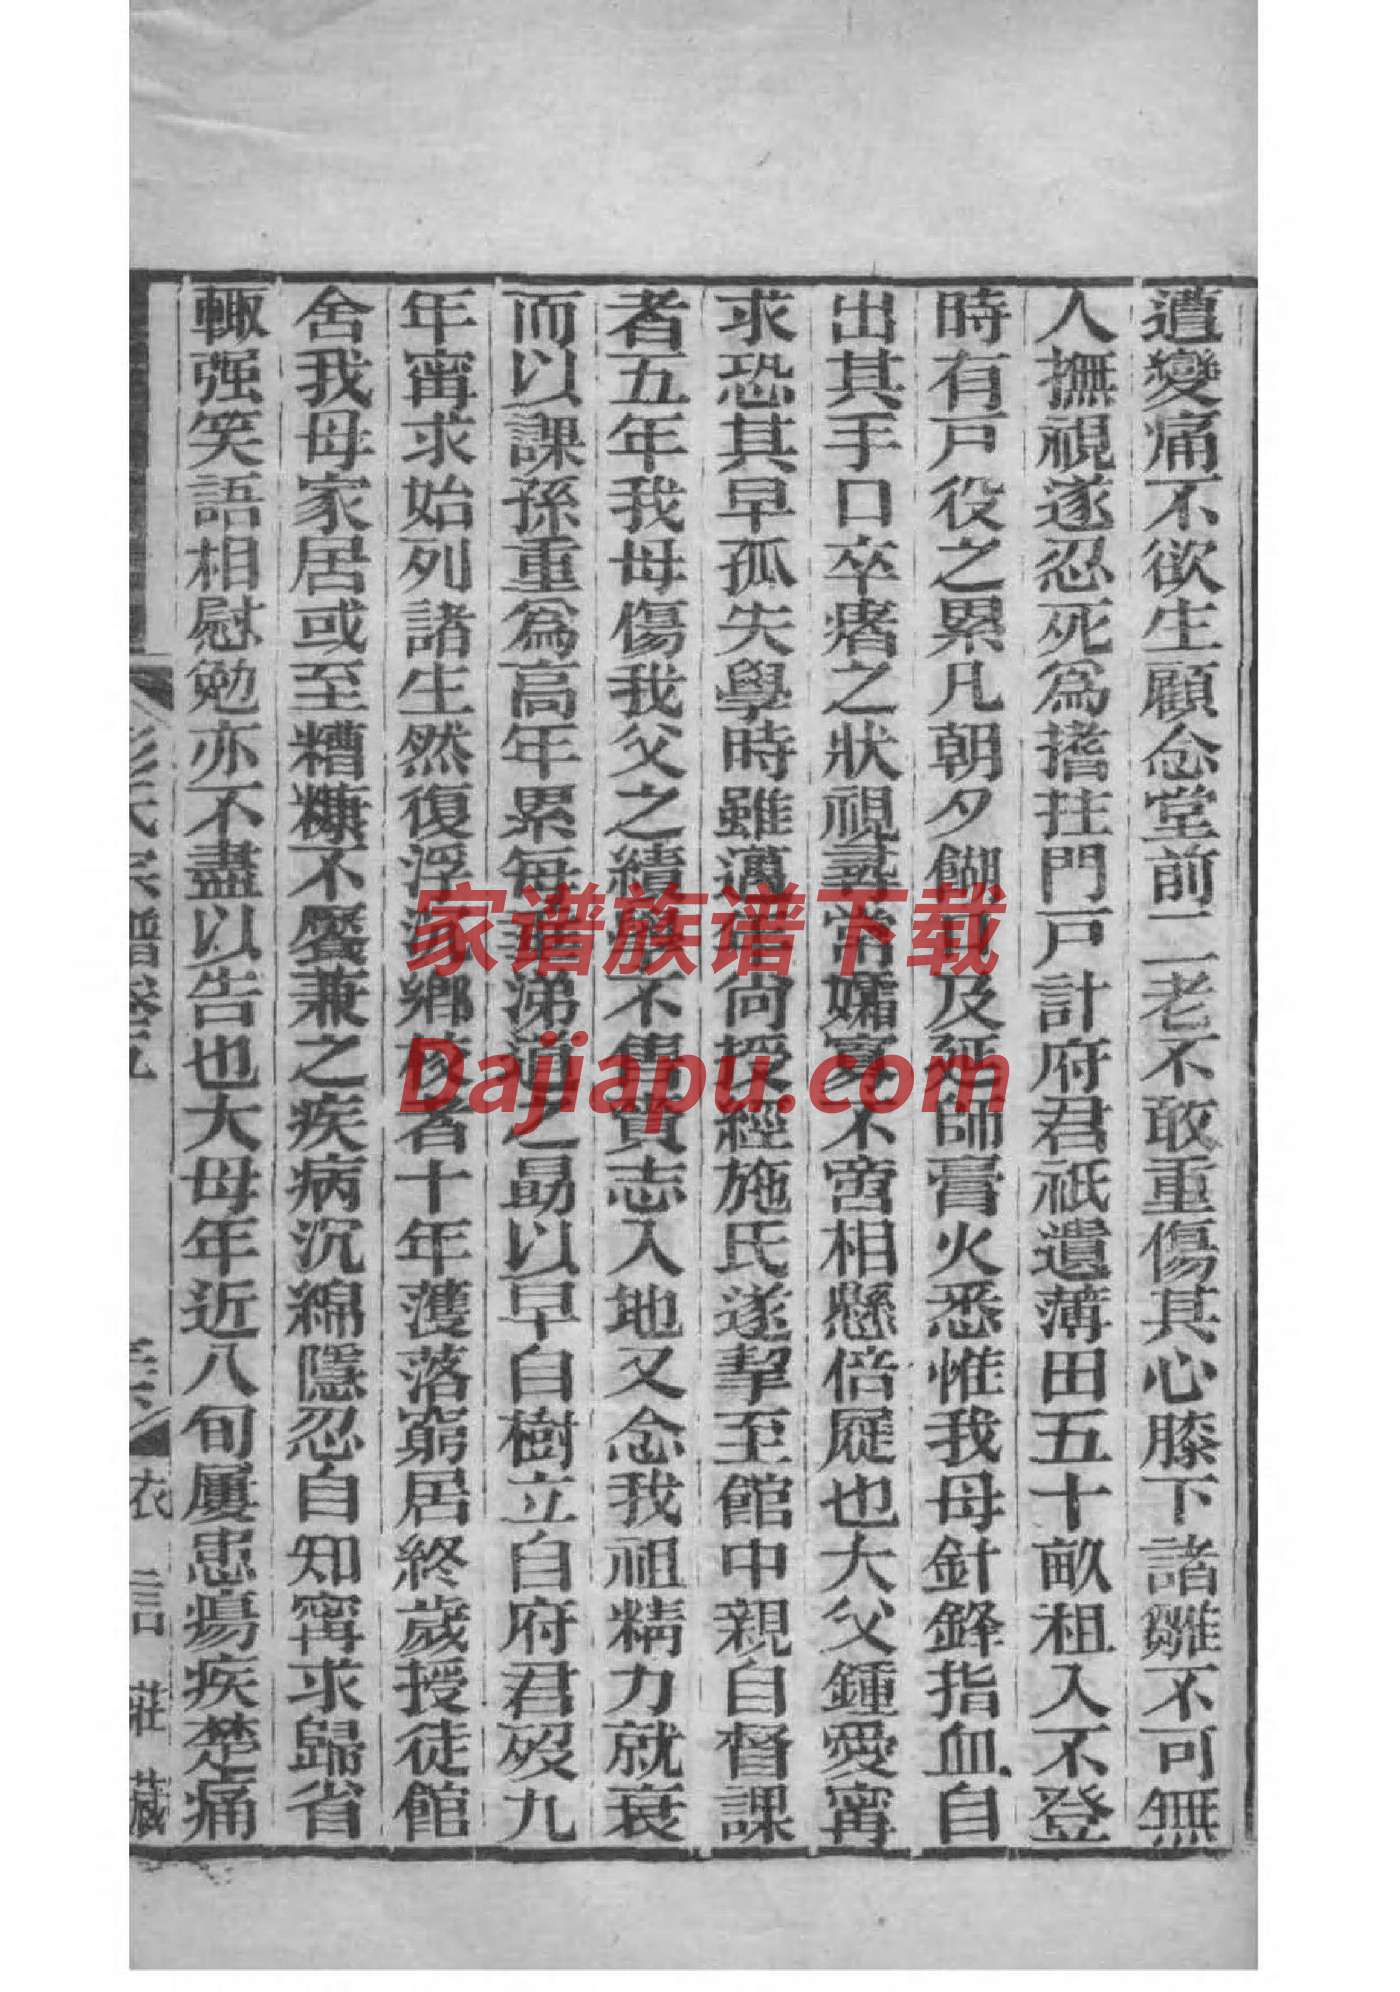 遭變痛不欲生顧念堂前二老不敢重傷其心膝下諸雛不可無
人撫視遂忍死爲搘拄門戸計府君祇遺薄田五十畝租入不登
時有戸役之累凡朝夕餬口及延師膏火悉惟我母針鋒指血自
出其手口卒瘏之狀視尋常孀寡不啻相懸倍屣也大父鍾愛甯
求恐其早孤失學時雖邁年尙授經施氏遂挈至館中親自督課
者五年我母傷我父之績學不售賫志入地又念我祖精力就衰
而以課孫重爲高年累每垂涕道之勗以早自樹立自府君歿九
年甯求始列諸生然復浮沉鄕校者十年濩落窮居終歲授徒館
舍我母家居或至糟糠不饜兼之疾病沉綿隱忍自知甯求歸省
輙强笑語相慰勉亦不盡以告也大母年近八旬屢患瘍疾楚痛
彭氏宗譜卷九
衣言莊藏
家谱族谱下载
Dajiapu.com